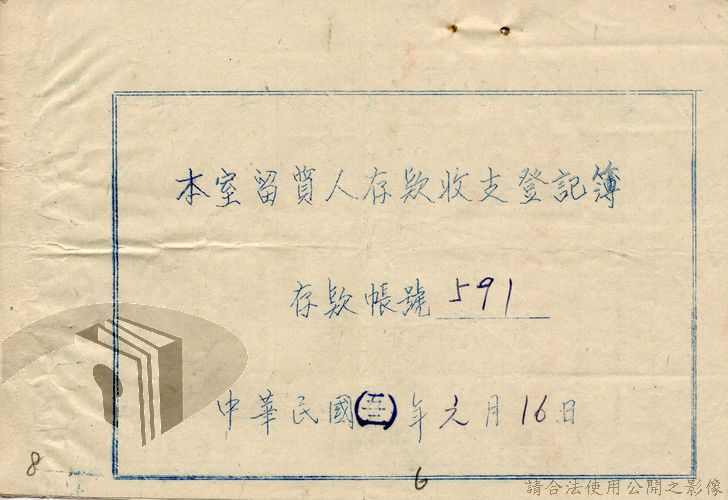 本室留質人存款收支登記簿
存款帳號 591
中華民國(五三)年元月16日
8
6
請合法使用公開之影像